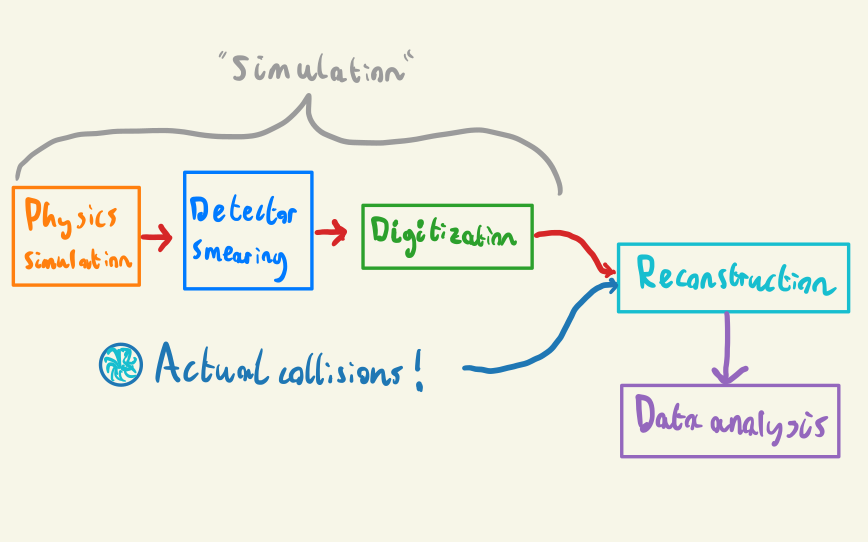 "Simulation"
Physics
simulation
Detector
smearing
Digitization
Reconstruction
Actual collisions!
Data analysis